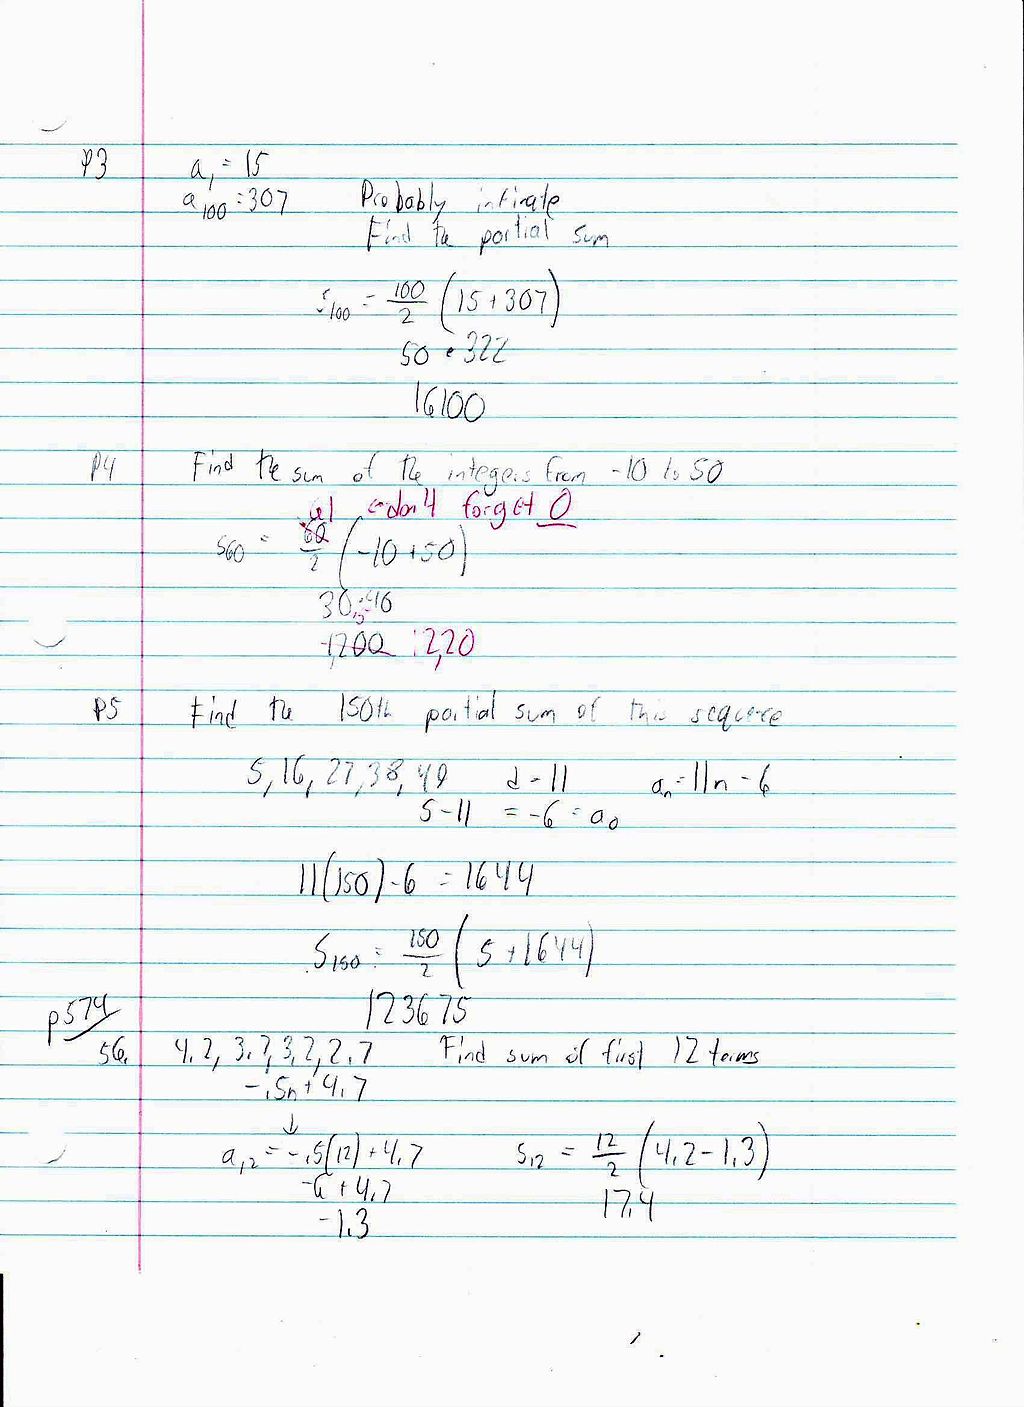 P3 a₁ = 15
a₁₀₀ = 307 Probably infinate
Find the partial sum
S₁₀₀ = 100/2 (15 + 307)
50 • 322
16100
P4 Find the sum of the integers from -10 to 50
61 ← don't forget 0
S₆₀ = 60/2 (-10 + 50)
30 · 40
1,200 1,220
P5 Find the 150th partial sum of this sequence
5, 16, 27, 38, 49 d = 11 aₙ = 11n - 6
5 - 11 = -6 = a₀
11(150) - 6 = 1644
S₁₅₀ = 150/2 (5 + 1644)
123675
p574
56. 4.2, 3.7, 3.2, 2.7 Find sum of first 12 terms
-.5n + 4.7
↓
a₁₂ = -.5(12) + 4.7 S₁₂ = 12/2 (4.2 - 1.3)
-6 + 4.7 17.4
-1.3